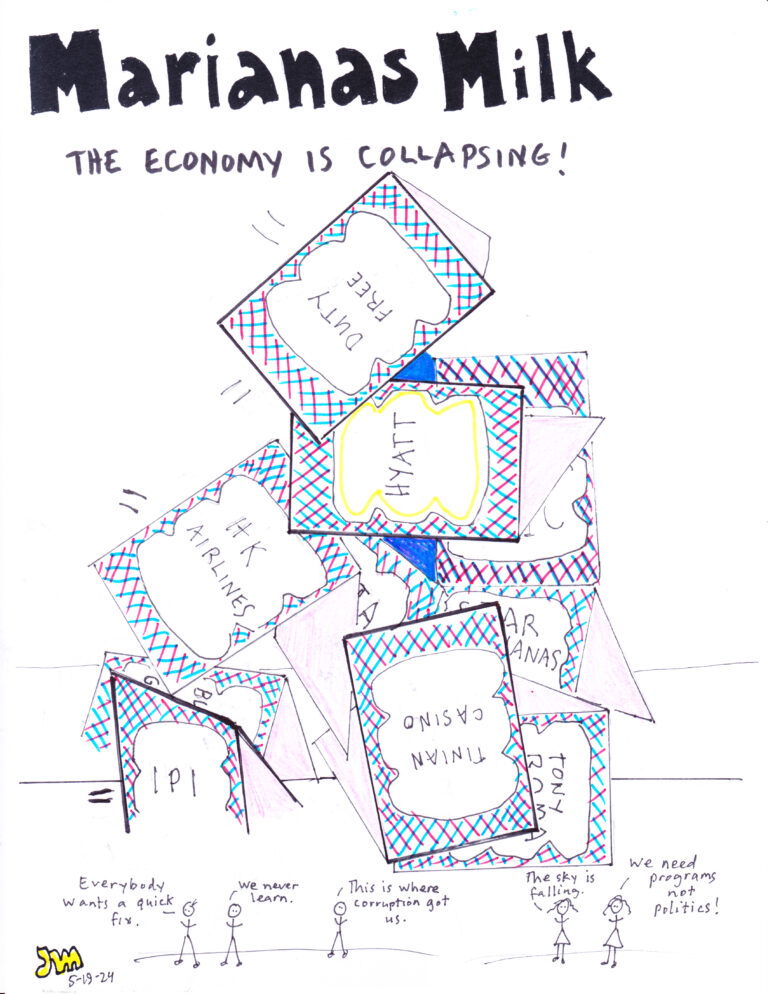 Marianas Milk
THE ECONOMY IS COLLAPSING!
DUTY
FREE
HYATT
C
HK
AIRLINES
TA
AR
ANAS
IPI
TINIAN
CASINO
TONY
ROMA
Everybody
wants a quick
fix.
We never
learn.
This is where
corruption got
us.
The sky is
falling.
We need
programs
not
politics!
JM
5-19-24